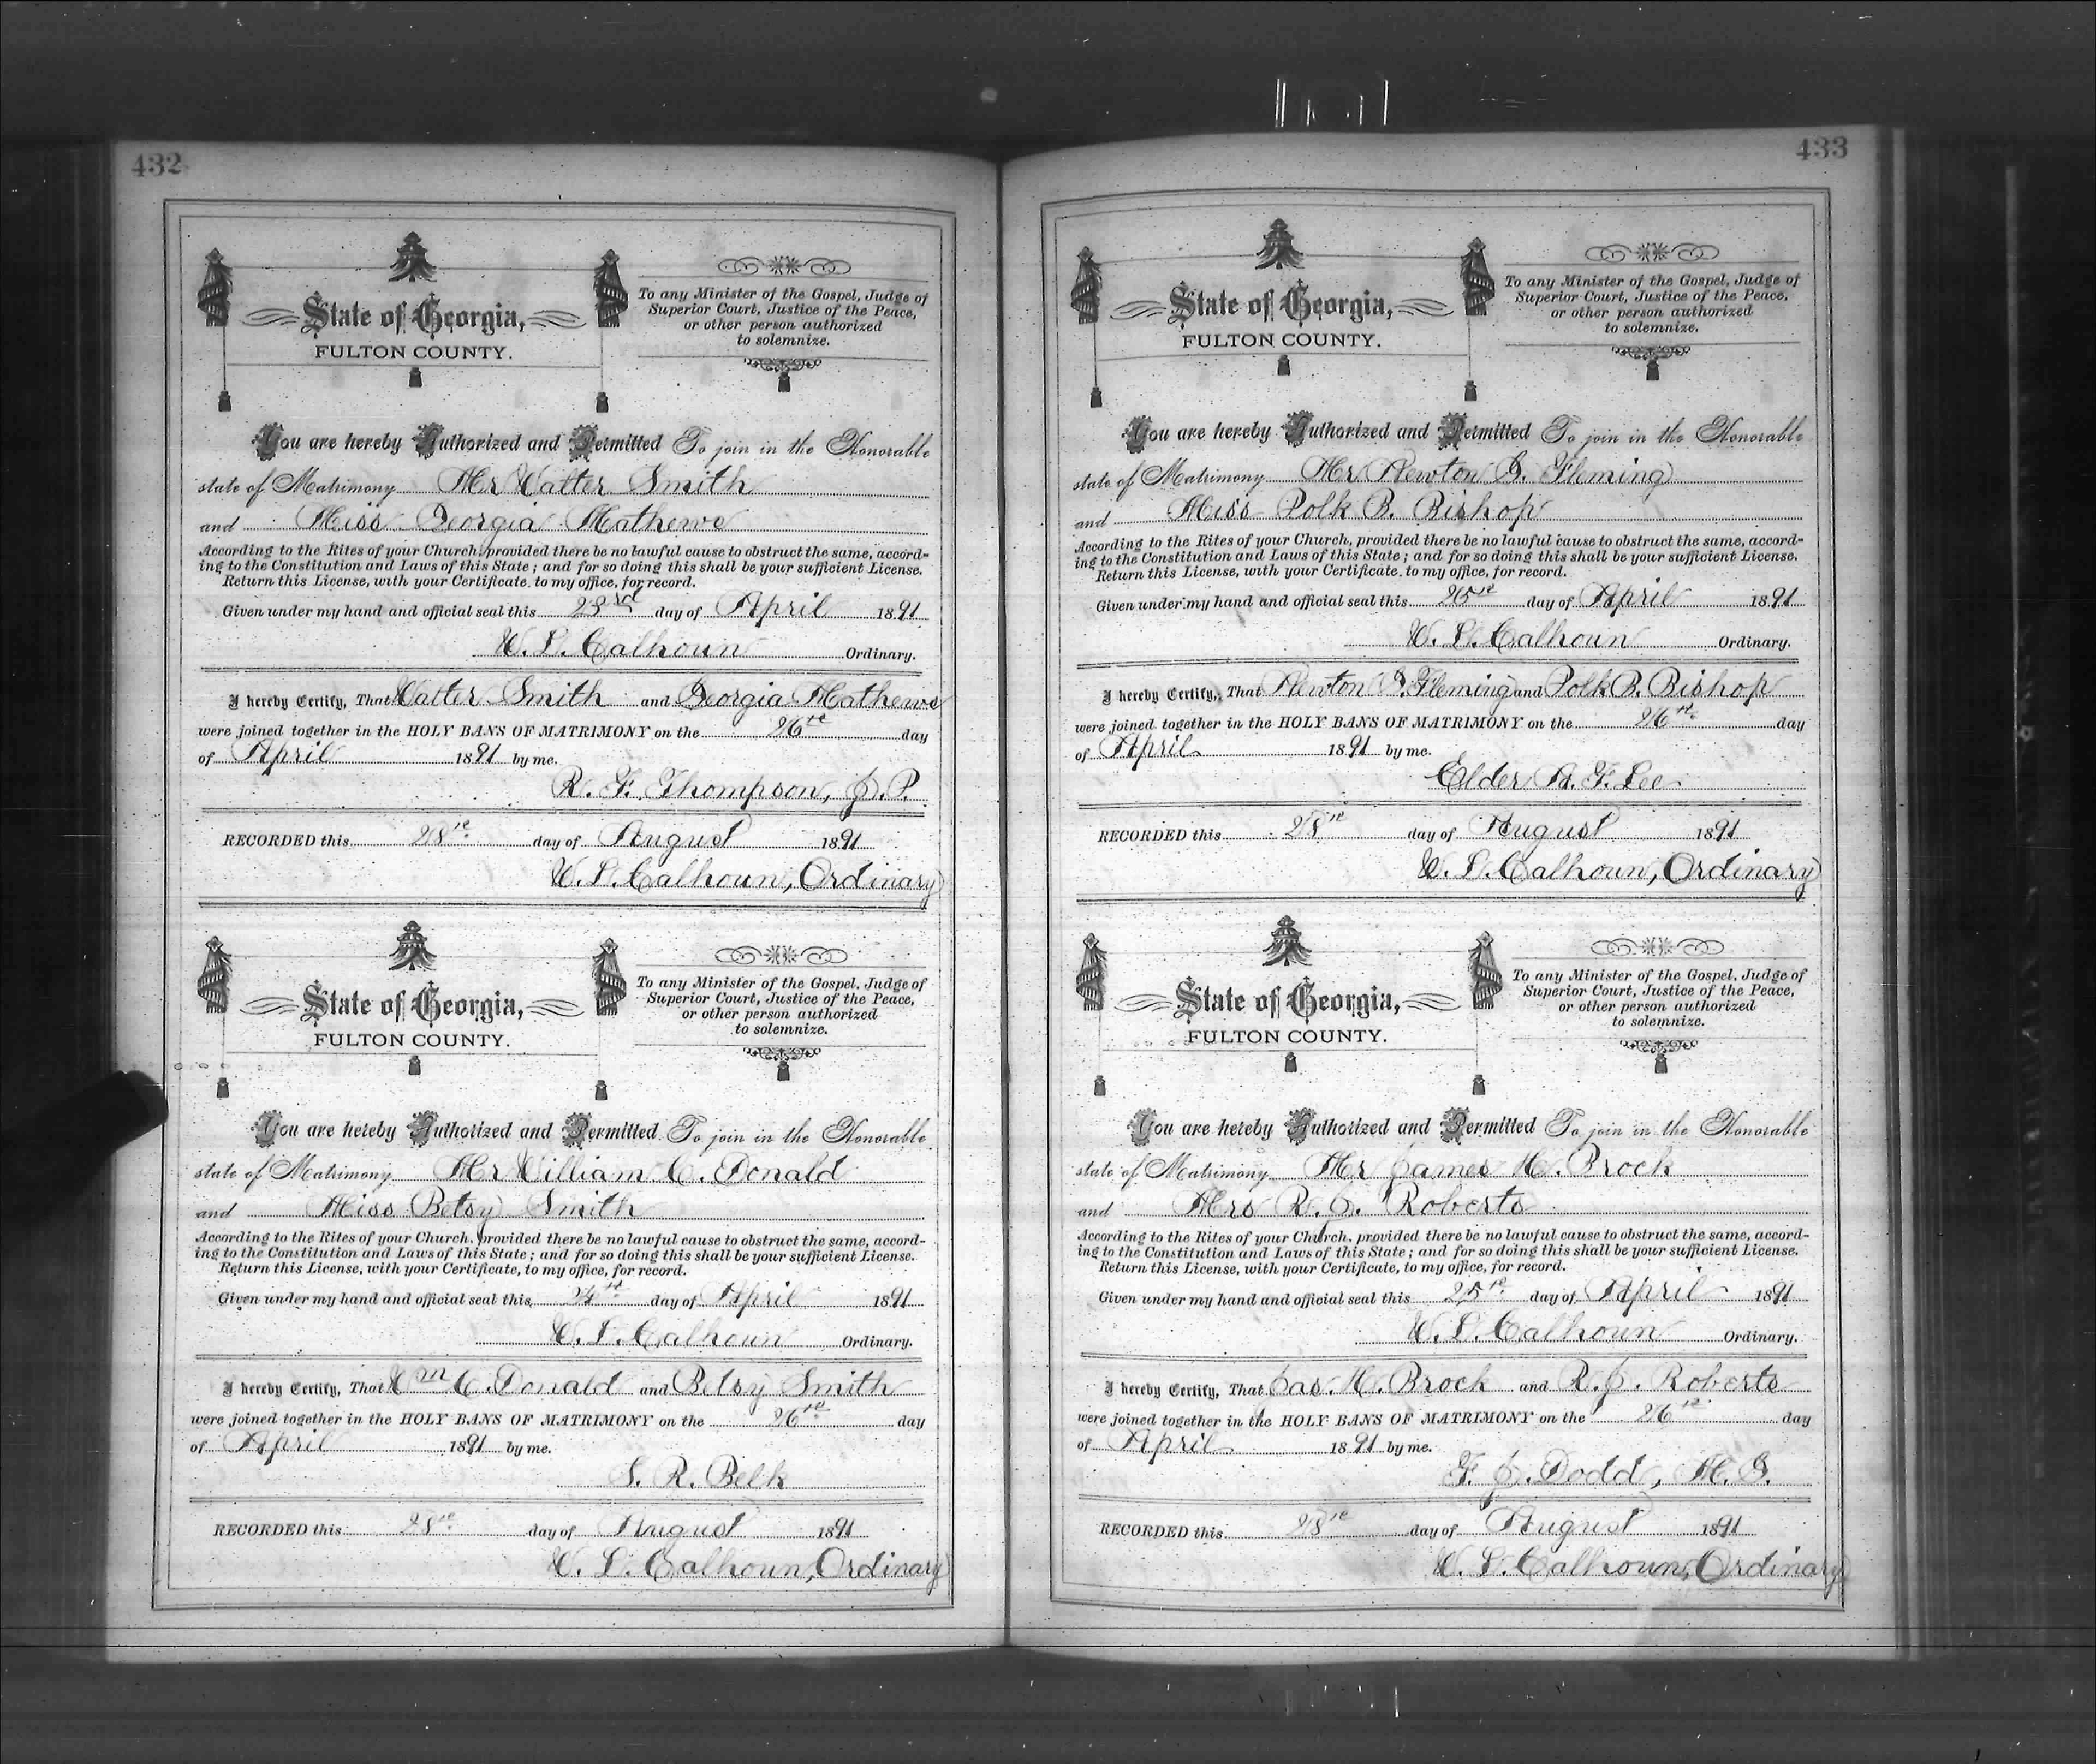 432
State of Georgia,
FULTON COUNTY.
To any Minister of the Gospel, Judge of
Superior Court, Justice of the Peace,
or other person authorized
to solemnize.
You are hereby Authorized and Permitted To join in the Honorable
state of Matrimony Mr Walter Smith
and Miss Georgia Mathews
According to the Rites of your Church, provided there be no lawful cause to obstruct the same, accord-
ing to the Constitution and Laws of this State; and for so doing this shall be your sufficient License.
Return this License, with your Certificate, to my office, for record.
Given under my hand and official seal this 23rd day of April 1891
W. L. Calhoun Ordinary.
I hereby Certify, That Walter Smith and Georgia Mathews
were joined together in the HOLY BANS OF MATRIMONY on the 26th day
of April 1891 by me.
R. F. Thompson, J. P.
RECORDED this 28th day of August 1891
W. L. Calhoun, Ordinary
State of Georgia,
FULTON COUNTY.
To any Minister of the Gospel, Judge of
Superior Court, Justice of the Peace,
or other person authorized
to solemnize.
You are hereby Authorized and Permitted To join in the Honorable
state of Matrimony Mr William C. Donald
and Miss Betsy Smith
According to the Rites of your Church, provided there be no lawful cause to obstruct the same, accord-
ing to the Constitution and Laws of this State; and for so doing this shall be your sufficient License.
Return this License, with your Certificate, to my office, for record.
Given under my hand and official seal this 24th day of April 1891
W. L. Calhoun Ordinary.
I hereby Certify, That Wm C. Donald and Betsy Smith
were joined together in the HOLY BANS OF MATRIMONY on the 26th day
of April 1891 by me.
S. R. Belk
RECORDED this 28th day of August 1891
W. L. Calhoun, Ordinary
433
State of Georgia,
FULTON COUNTY.
To any Minister of the Gospel, Judge of
Superior Court, Justice of the Peace,
or other person authorized
to solemnize.
You are hereby Authorized and Permitted To join in the Honorable
state of Matrimony Mr Newton G. Fleming
and Miss Polk B. Bishop
According to the Rites of your Church, provided there be no lawful cause to obstruct the same, accord-
ing to the Constitution and Laws of this State; and for so doing this shall be your sufficient License.
Return this License, with your Certificate, to my office, for record.
Given under my hand and official seal this 25th day of April 1891
W. L. Calhoun Ordinary.
I hereby Certify, That Newton G. Fleming and Polk B. Bishop
were joined together in the HOLY BANS OF MATRIMONY on the 26th day
of April 1891 by me.
Elder A. F. Lee
RECORDED this 28th day of August 1891
W. L. Calhoun, Ordinary
State of Georgia,
FULTON COUNTY.
To any Minister of the Gospel, Judge of
Superior Court, Justice of the Peace,
or other person authorized
to solemnize.
You are hereby Authorized and Permitted To join in the Honorable
state of Matrimony Mr James H. Brock
and Mrs R. J. Roberts
According to the Rites of your Church, provided there be no lawful cause to obstruct the same, accord-
ing to the Constitution and Laws of this State; and for so doing this shall be your sufficient License.
Return this License, with your Certificate, to my office, for record.
Given under my hand and official seal this 25th day of April 1891
W. L. Calhoun Ordinary.
I hereby Certify, That Jas. H. Brock and R. J. Roberts
were joined together in the HOLY BANS OF MATRIMONY on the 26th day
of April 1891 by me.
F. J. Dodd, M. G.
RECORDED this 28th day of August 1891
W. L. Calhoun, Ordinary